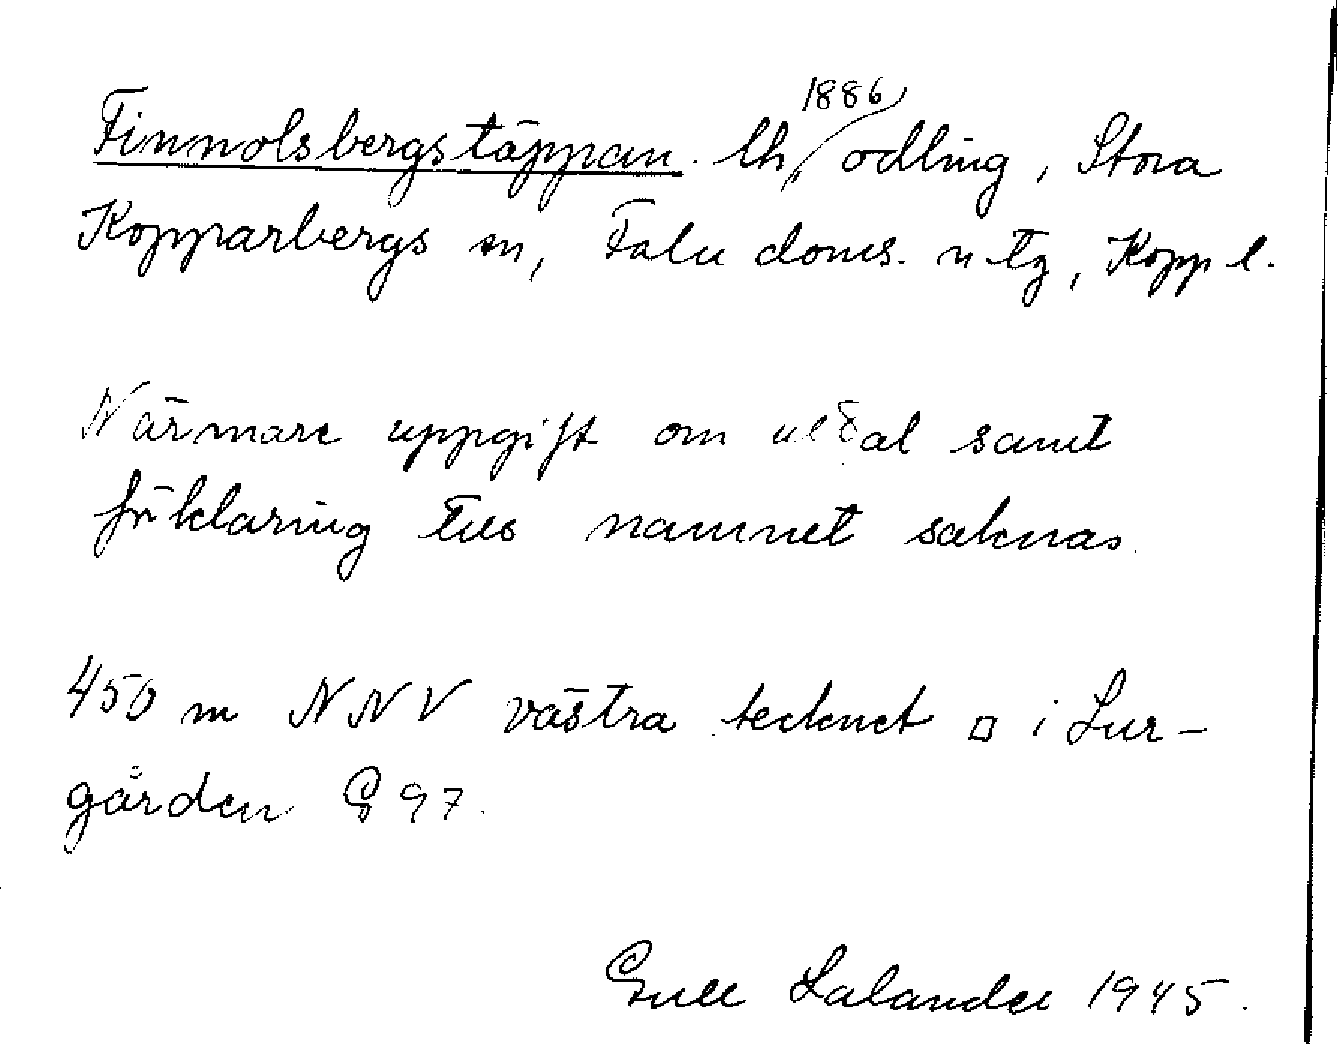 Finnolsbergstäppan. lh, 1886 odling, Stora
Kopparbergs sn, Falu doms. n tg, Kopp l.
Närmare uppgift om uttal samt
förklaring till namnet saknas.
450 m NNV västra tecknet □ i Lur-
gården G 97.
Gull Lalander 1945.